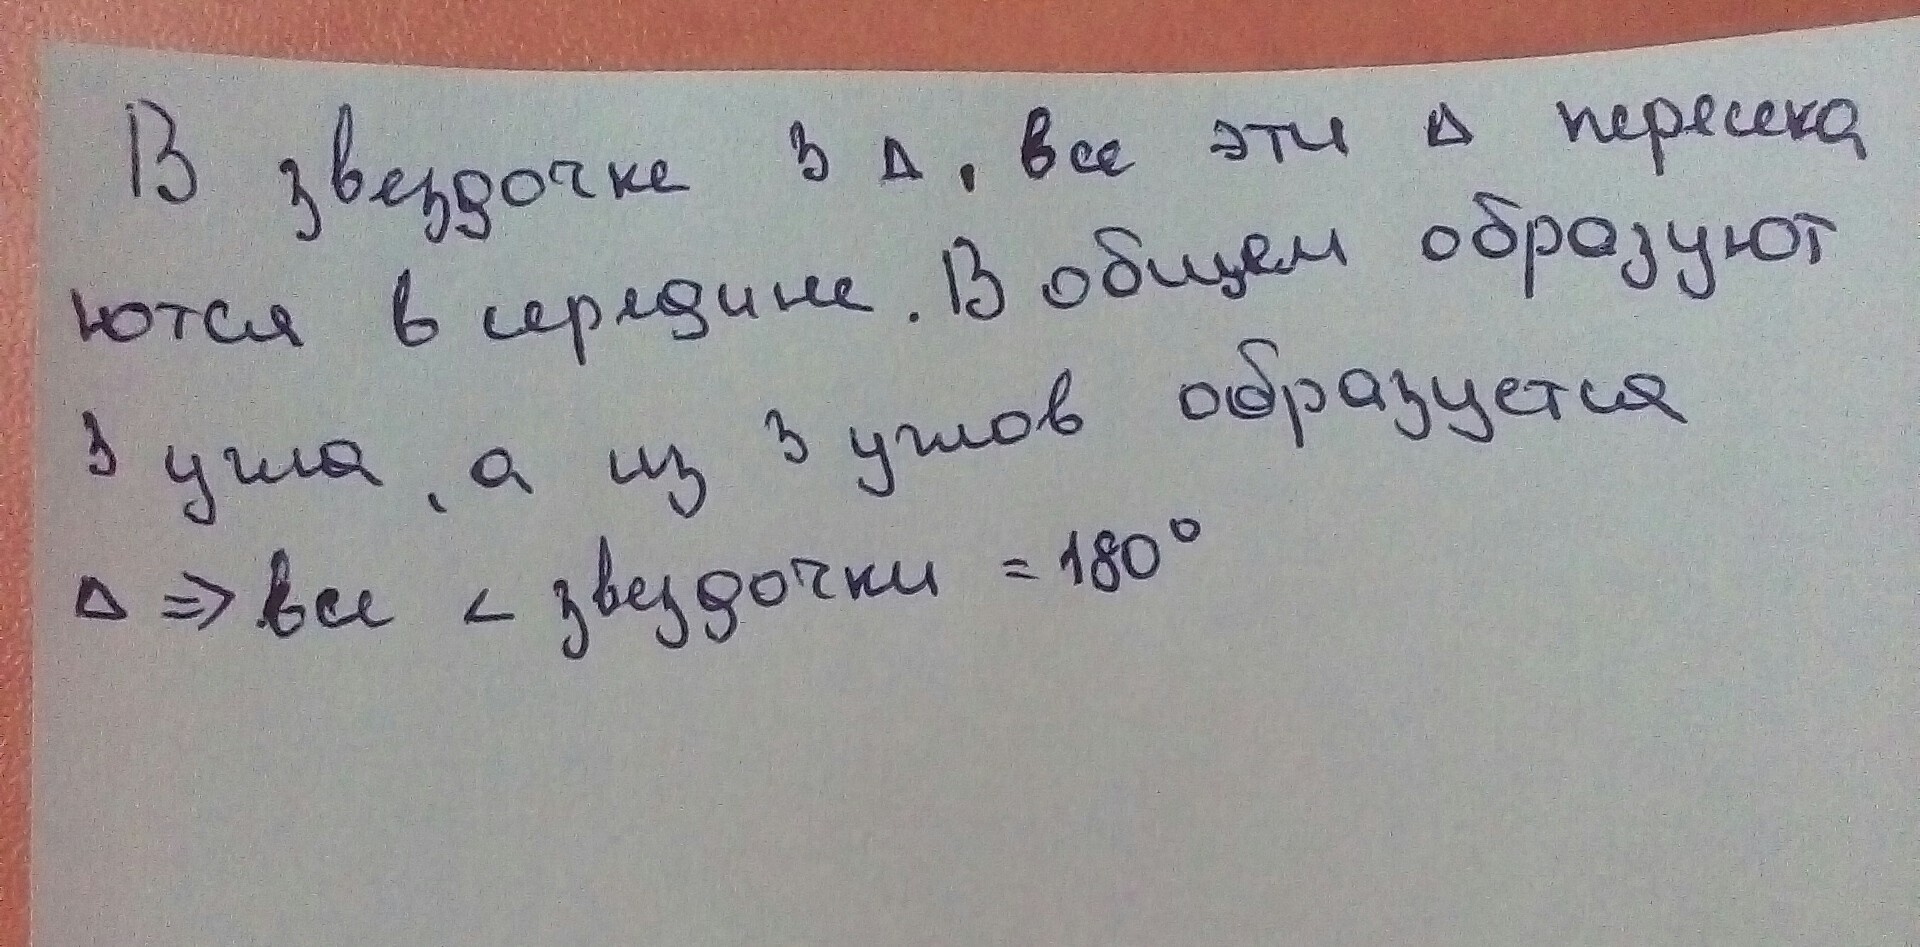 В звездочке 3 Δ, все эти Δ пересека
ются в середине. В общем образуют
3 угла, а из 3 углов образуется
Δ => все < звездочки = 180°